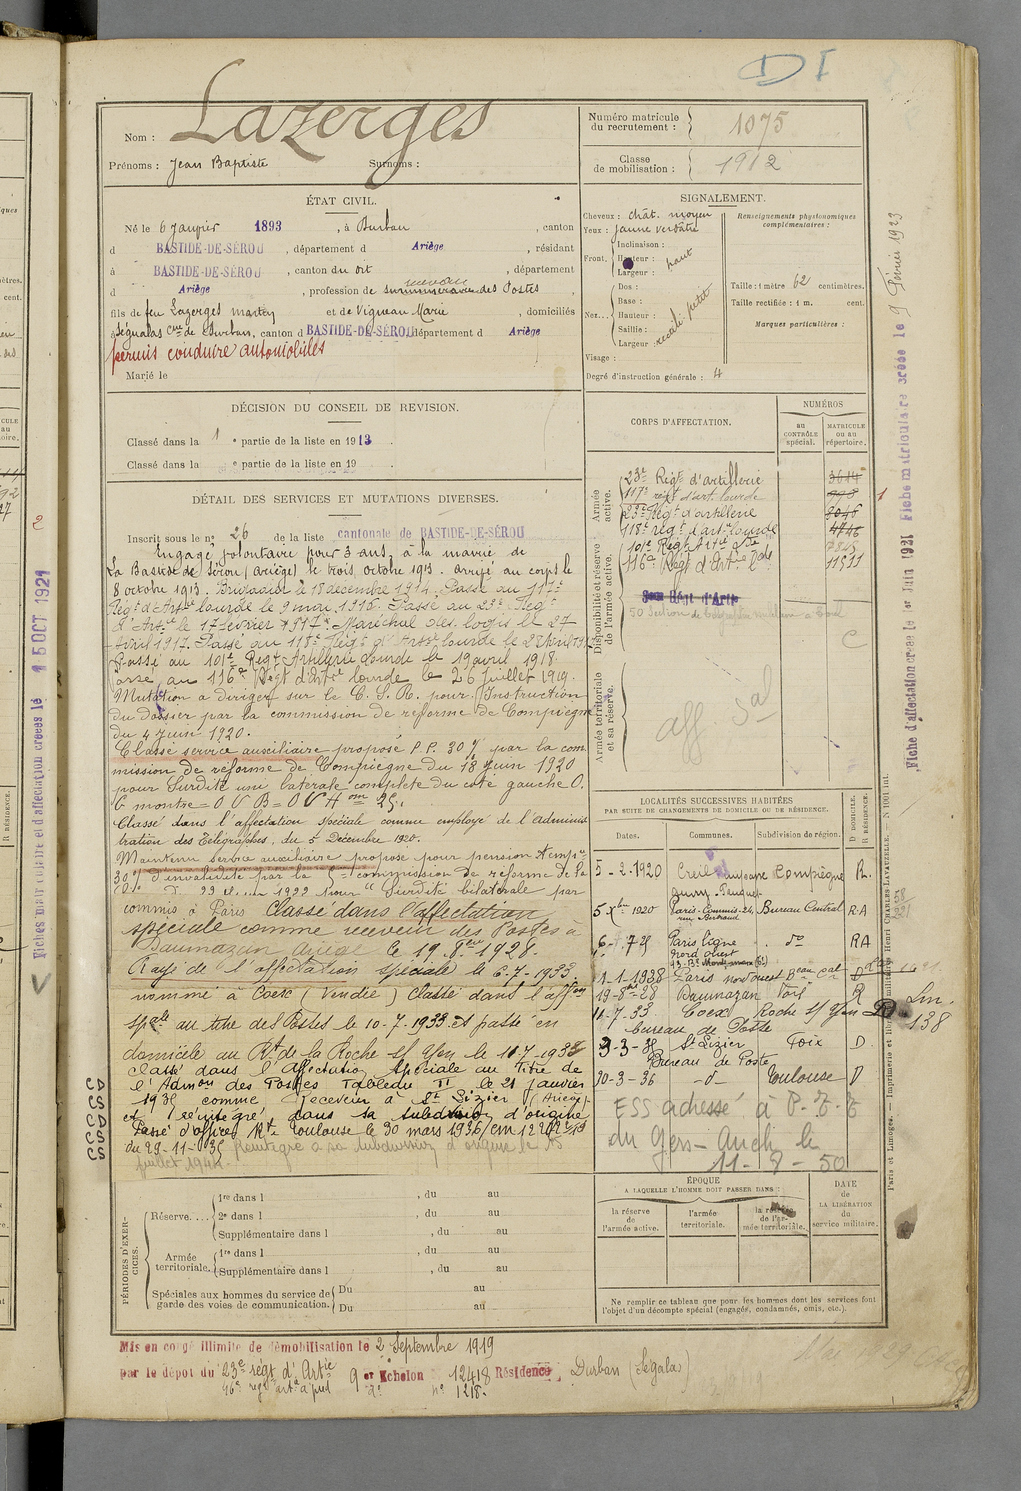 DI
Nom : Lazerges
Prénoms : Jean Baptiste Surnoms :
Numéro matricule du recrutement : 1075
Classe de mobilisation : 1912
ÉTAT CIVIL.
Né le 6 Janvier 1893, à Durban, canton
d BASTIDE-DE-SÉROU, département d Ariège, résidant
à BASTIDE-DE-SÉROU, canton du dit, département
d Ariège, profession de surnuméraire des Postes,
fils de feu Lazerges martin et de Vigneau Marie, domiciliés
à Ségualas Cne de Durban, canton d BASTIDE-DE-SÉROU département d Ariège
permis conduire automobiles
Marié le
SIGNALEMENT.
Cheveux : chât. moyen
Yeux : jaune verdâtre
Front. Inclinaison :
Hauteur : haut
Largeur :
Nez... Dos :
Base :
Hauteur : petit
Saillie :
Largeur :
Visage :
Degré d'instruction générale : 4
Renseignements physionomiques complémentaires :
Taille : 1 mètre 62 centimètres.
Taille rectifiée : 1 m. cent.
Marques particulières :
DÉCISION DU CONSEIL DE REVISION.
Classé dans la 1e partie de la liste en 1913.
Classé dans la e partie de la liste en 19 .
DÉTAIL DES SERVICES ET MUTATIONS DIVERSES.
Inscrit sous le n° 26 de la liste cantonale de BASTIDE-DE-SÉROU
Engagé volontaire pour 3 ans, à la mairie de
La Bastide de Sérou (Ariège) le trois octobre 1913. arrivé au corps le
8 octobre 1913. Brigadier le 18 décembre 1914. Passé au 117e
Régt d'Artie lourde le 9 mai 1916. Passé au 23e Régt
d'Artie le 17 février 1917. Maréchal des logis le 27
Avril 1917. Passé au 118e Régt d'Artie lourde le 28 Avril 1917
Passé au 101e Régt Artillerie lourde le 19 avril 1918.
Passé au 116e Régt d'Artie lourde le 26 Juillet 1919.
Mutation a diriger sur le C. S. R. pour Instruction
du dossier par la commission de réforme de Compiègne
du 4 juin 1920.
Classé service auxiliaire proposé P.P. 30 % par la com
mission de réforme de Compiègne du 18 juin 1920
pour Surdité uni latérale complète du coté gauche O.
G montre = O V B = O V H om 25.
Classé dans l'affectation spéciale comme employé de l'adminis
tration des Télégraphes, du 5 Décembre 1920.
Maintenu service auxiliaire proposé pour pension temp
30 % d'invalidité par la commission de réforme de la
1922 pour "Surdité bilatérale par
commis à Paris Classé dans l'affectation
spéciale comme receveur des Postes à
Daumazan Ariège le 19. 8bre 1928.
Rayé de l'affectation spéciale le 6-7-1933.
nommé à Coex (Vendée) Classé dans l'affon
spale au titre des Postes le 10-7-1933 et passé en
domicile au Rt de la Roche s/ Yon le 11-7-1933
classé dans l'Affectation Spéciale au Titre de
l'Admon des Postes Tableau II le 21 janvier
1935 comme Receveur à St Lizier (Ariège)
et réintégré dans sa subdivision d'origine
Passé d'office Rt Toulouse le 30 mars 1936
du 29-11-35 Réintégré à sa subdivision d'origine le 15
juillet 1941.
CORPS D'AFFECTATION.
NUMÉROS
au CONTRÔLE spécial.
MATRICULE ou au répertoire.
Armée active.
23e Régt d'artillerie 3614
117e régt d'art. lourde 998
23e Régt d'artillerie 8046
118e régt d'art lourde 4746
101e Régt Artie Lde
116e Régt d'Artie Lde 11511
Disponibilité et réserve de l'armée active.
Régt d'Artie
C
Armée territoriale et sa réserve.
aff. Sal
LOCALITÉS SUCCESSIVES HABITÉES
PAR SUITE DE CHANGEMENTS DE DOMICILE OU DE RÉSIDENCE.
Dates. Communes. Subdivision de région. D DOMICILE. R RÉSIDENCE.
5-2.1920 Creil Compiègne R.
5 Xbre 1920 Paris-Commis-24, rue Bertrand Bureau Central R.A
6-7.25 Paris ligne Nord ouest do RA
1-1-1928 Paris nord ouest Beau cal
19-8bre-28 Daumazan Foix R
11-7-33 Coex Roche s/ Yon D
bureau de Poste
9-3-35 St Lizier Foix D
Bureau de Poste
30-3-36 -d- Toulouse D
ESS adressé à P-T-T
du Gers-Auch le
11-8-50
Lm.
138
PÉRIODES D'EXERCICES.
Réserve.... 1re dans l , du au
2e dans l , du au
Supplémentaire dans l , du au
Armée territoriale. 1re dans l , du au
Supplémentaire dans l , du au
Spéciales aux hommes du service de garde des voies de communication. Du au
Du au
ÉPOQUE
A LAQUELLE L'HOMME DOIT PASSER DANS :
la réserve de l'armée active.
l'armée territoriale.
la réserve de l'armée territoriale.
DATE de LA LIBÉRATION du service militaire.
Ne remplir ce tableau que pour les hommes dont les services font
l'objet d'un décompte spécial (engagés, condamnés, omis, etc.).
Mis en congé illimité de démobilisation le 2 Septembre 1919
par le dépôt du 23e régt d'Artie 9er Echelon n° 12418 Résidence Durban (Ségalas)
16e regt art à pied n° 1218.
Fiches matriculaire et d'affectation créées le 15 OCT 1921
Fiche d'affectation créée le 1er Juin 1921 Fiche matriculaire créée le 9 Février 1923
Paris et Limoges. — Imprimerie et librairie militaires Henri CHARLES-LAVAUZELLE. — N° 1001 int.